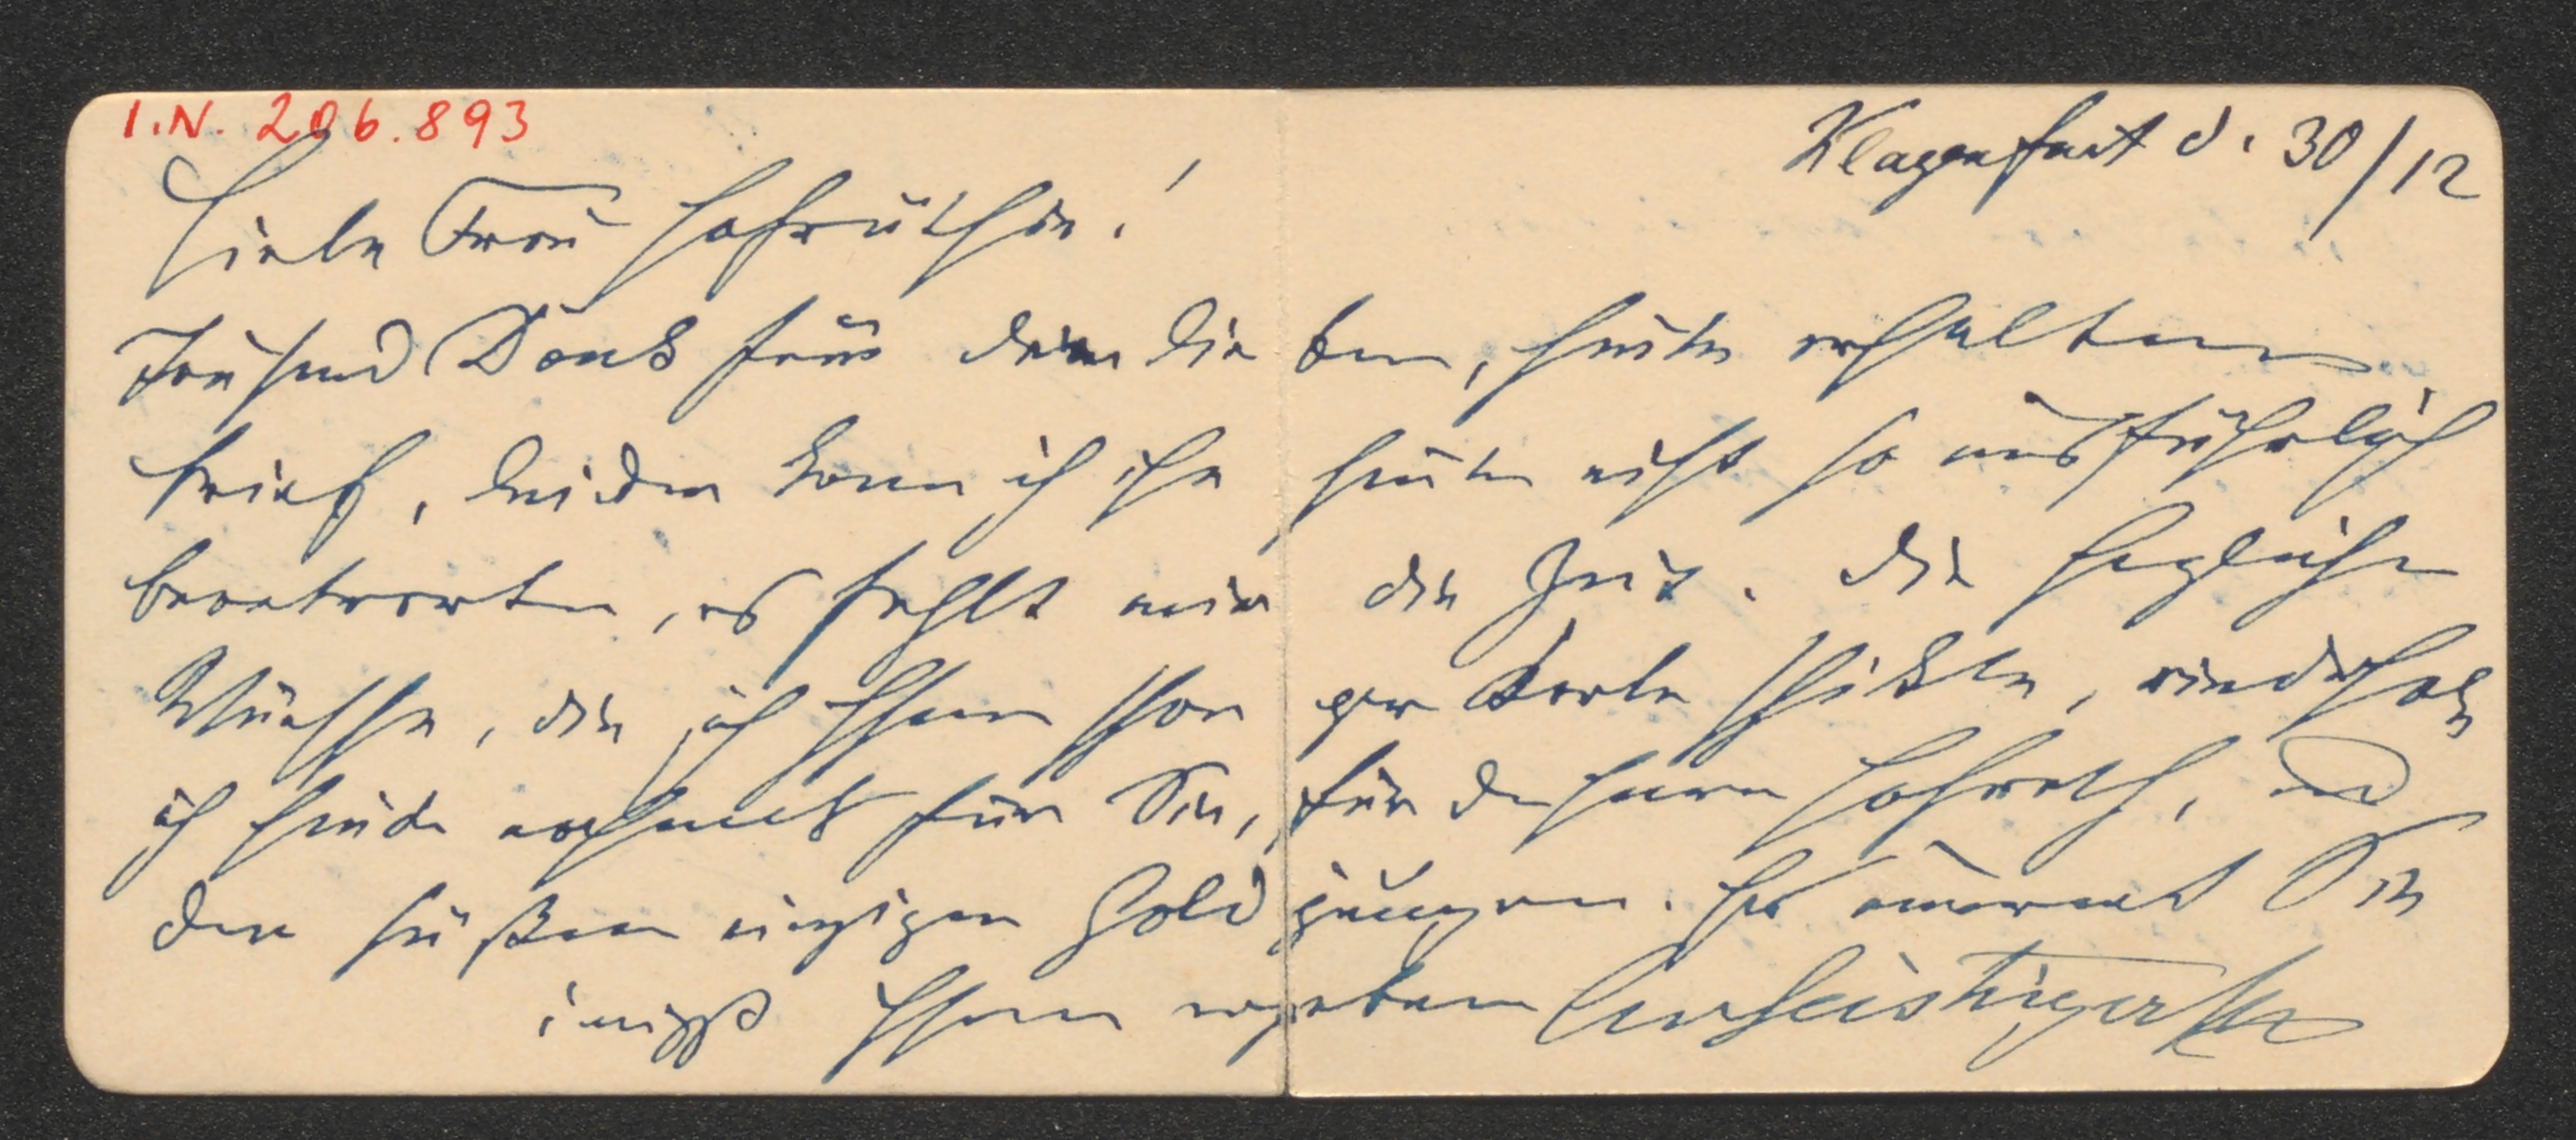 I.N. 206.893
Klagenfurt d. 30/12
Liebe Frau Hofräthin!
Tausend Dank für den lieben, heute erhaltenen
Brief, leider kann ich ihn heute nicht so ausführlich
beantworten, es fehlt mir die Zeit. Die herzlichen
Wünsche, die ich Ihnen schon per Karte schickte, wiederhole
ich heute nochmals für Sie, für den Herrn Hofrath, und
den süßen einzigen Goldjungen. Es umarmt Sie
innigst Ihnen ergeben